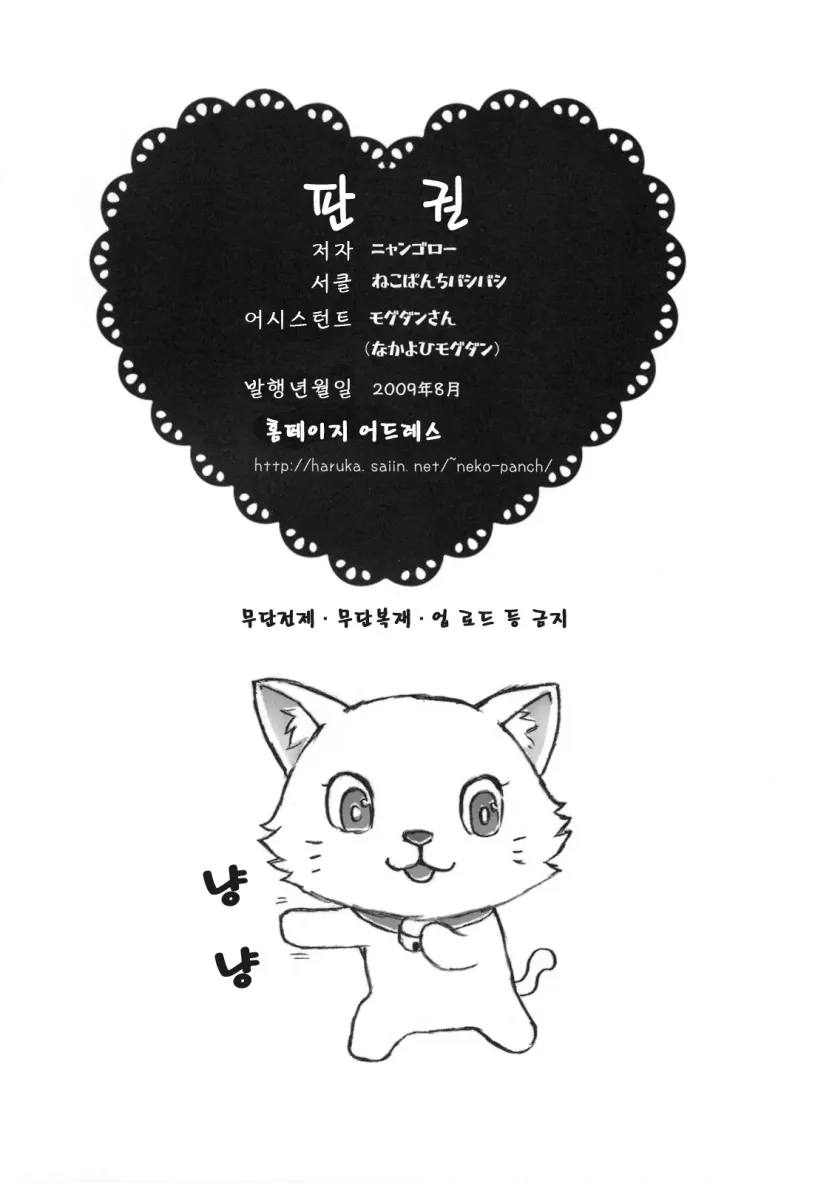 판 권
저자 ニャンゴロー
서클 ねこぱんちバシバシ
어시스턴트 モグダンさん
(なかよひモグダン)
발행년월일 2009年8月
홈페이지 어드레스
http://haruka.saiin.net/~neko-panch/
무단전제・무단복재・업 료드 등 금지
냥
냥